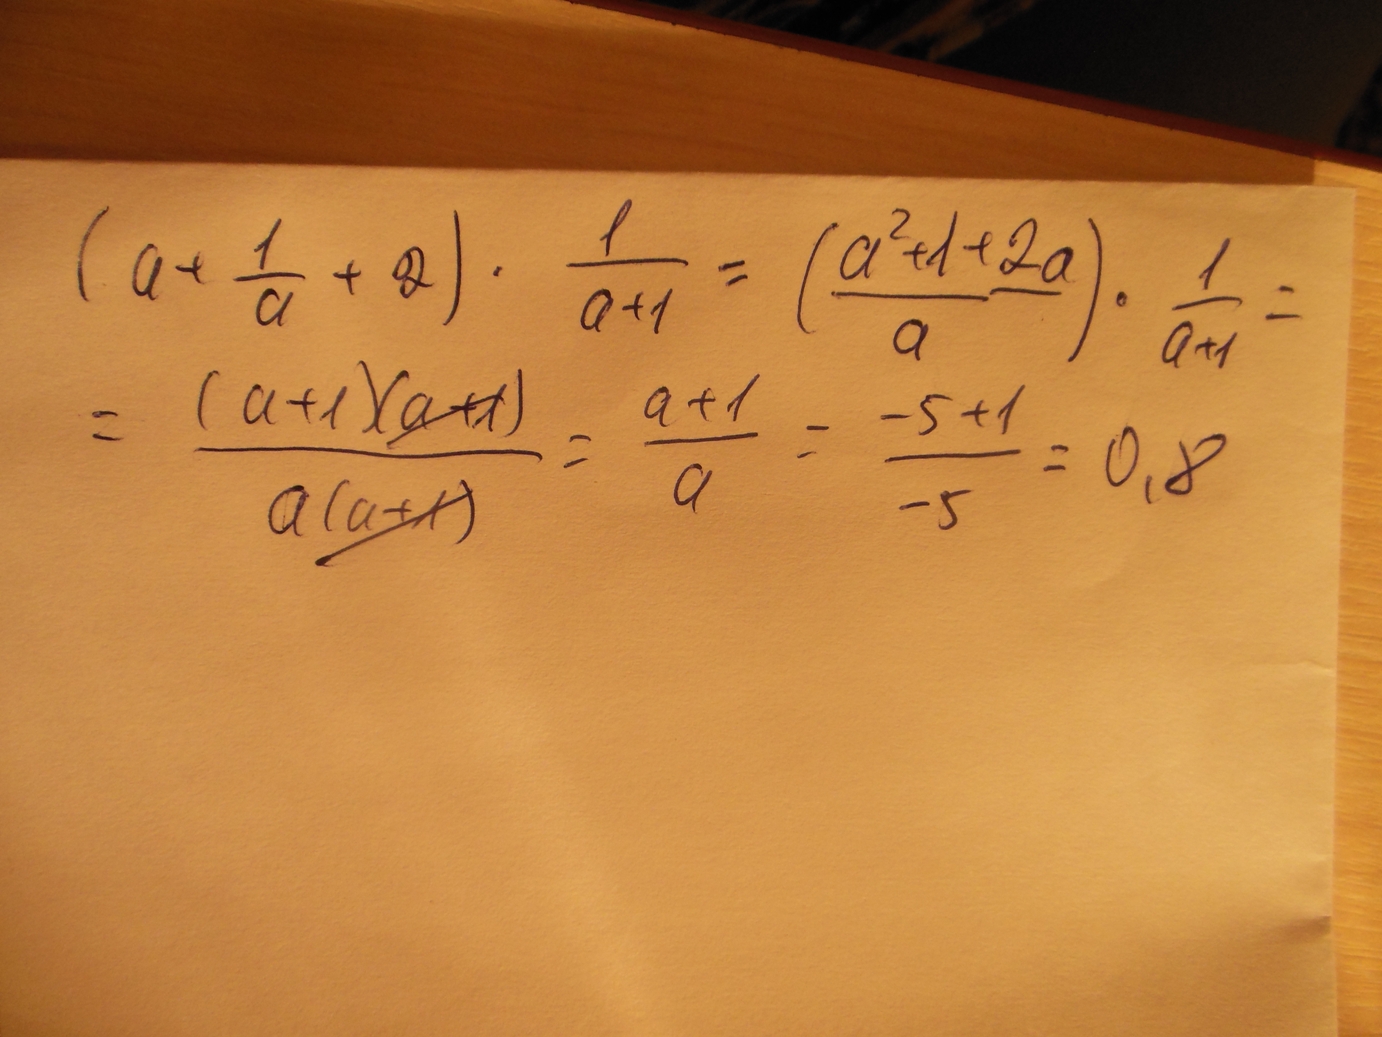 (a + 1/a + 2) · 1/(a+1) = ((a²+1+2a)/a) · 1/(a+1) =
= (a+1)(a+1)/(a(a+1)) = (a+1)/a = (-5+1)/(-5) = 0,8